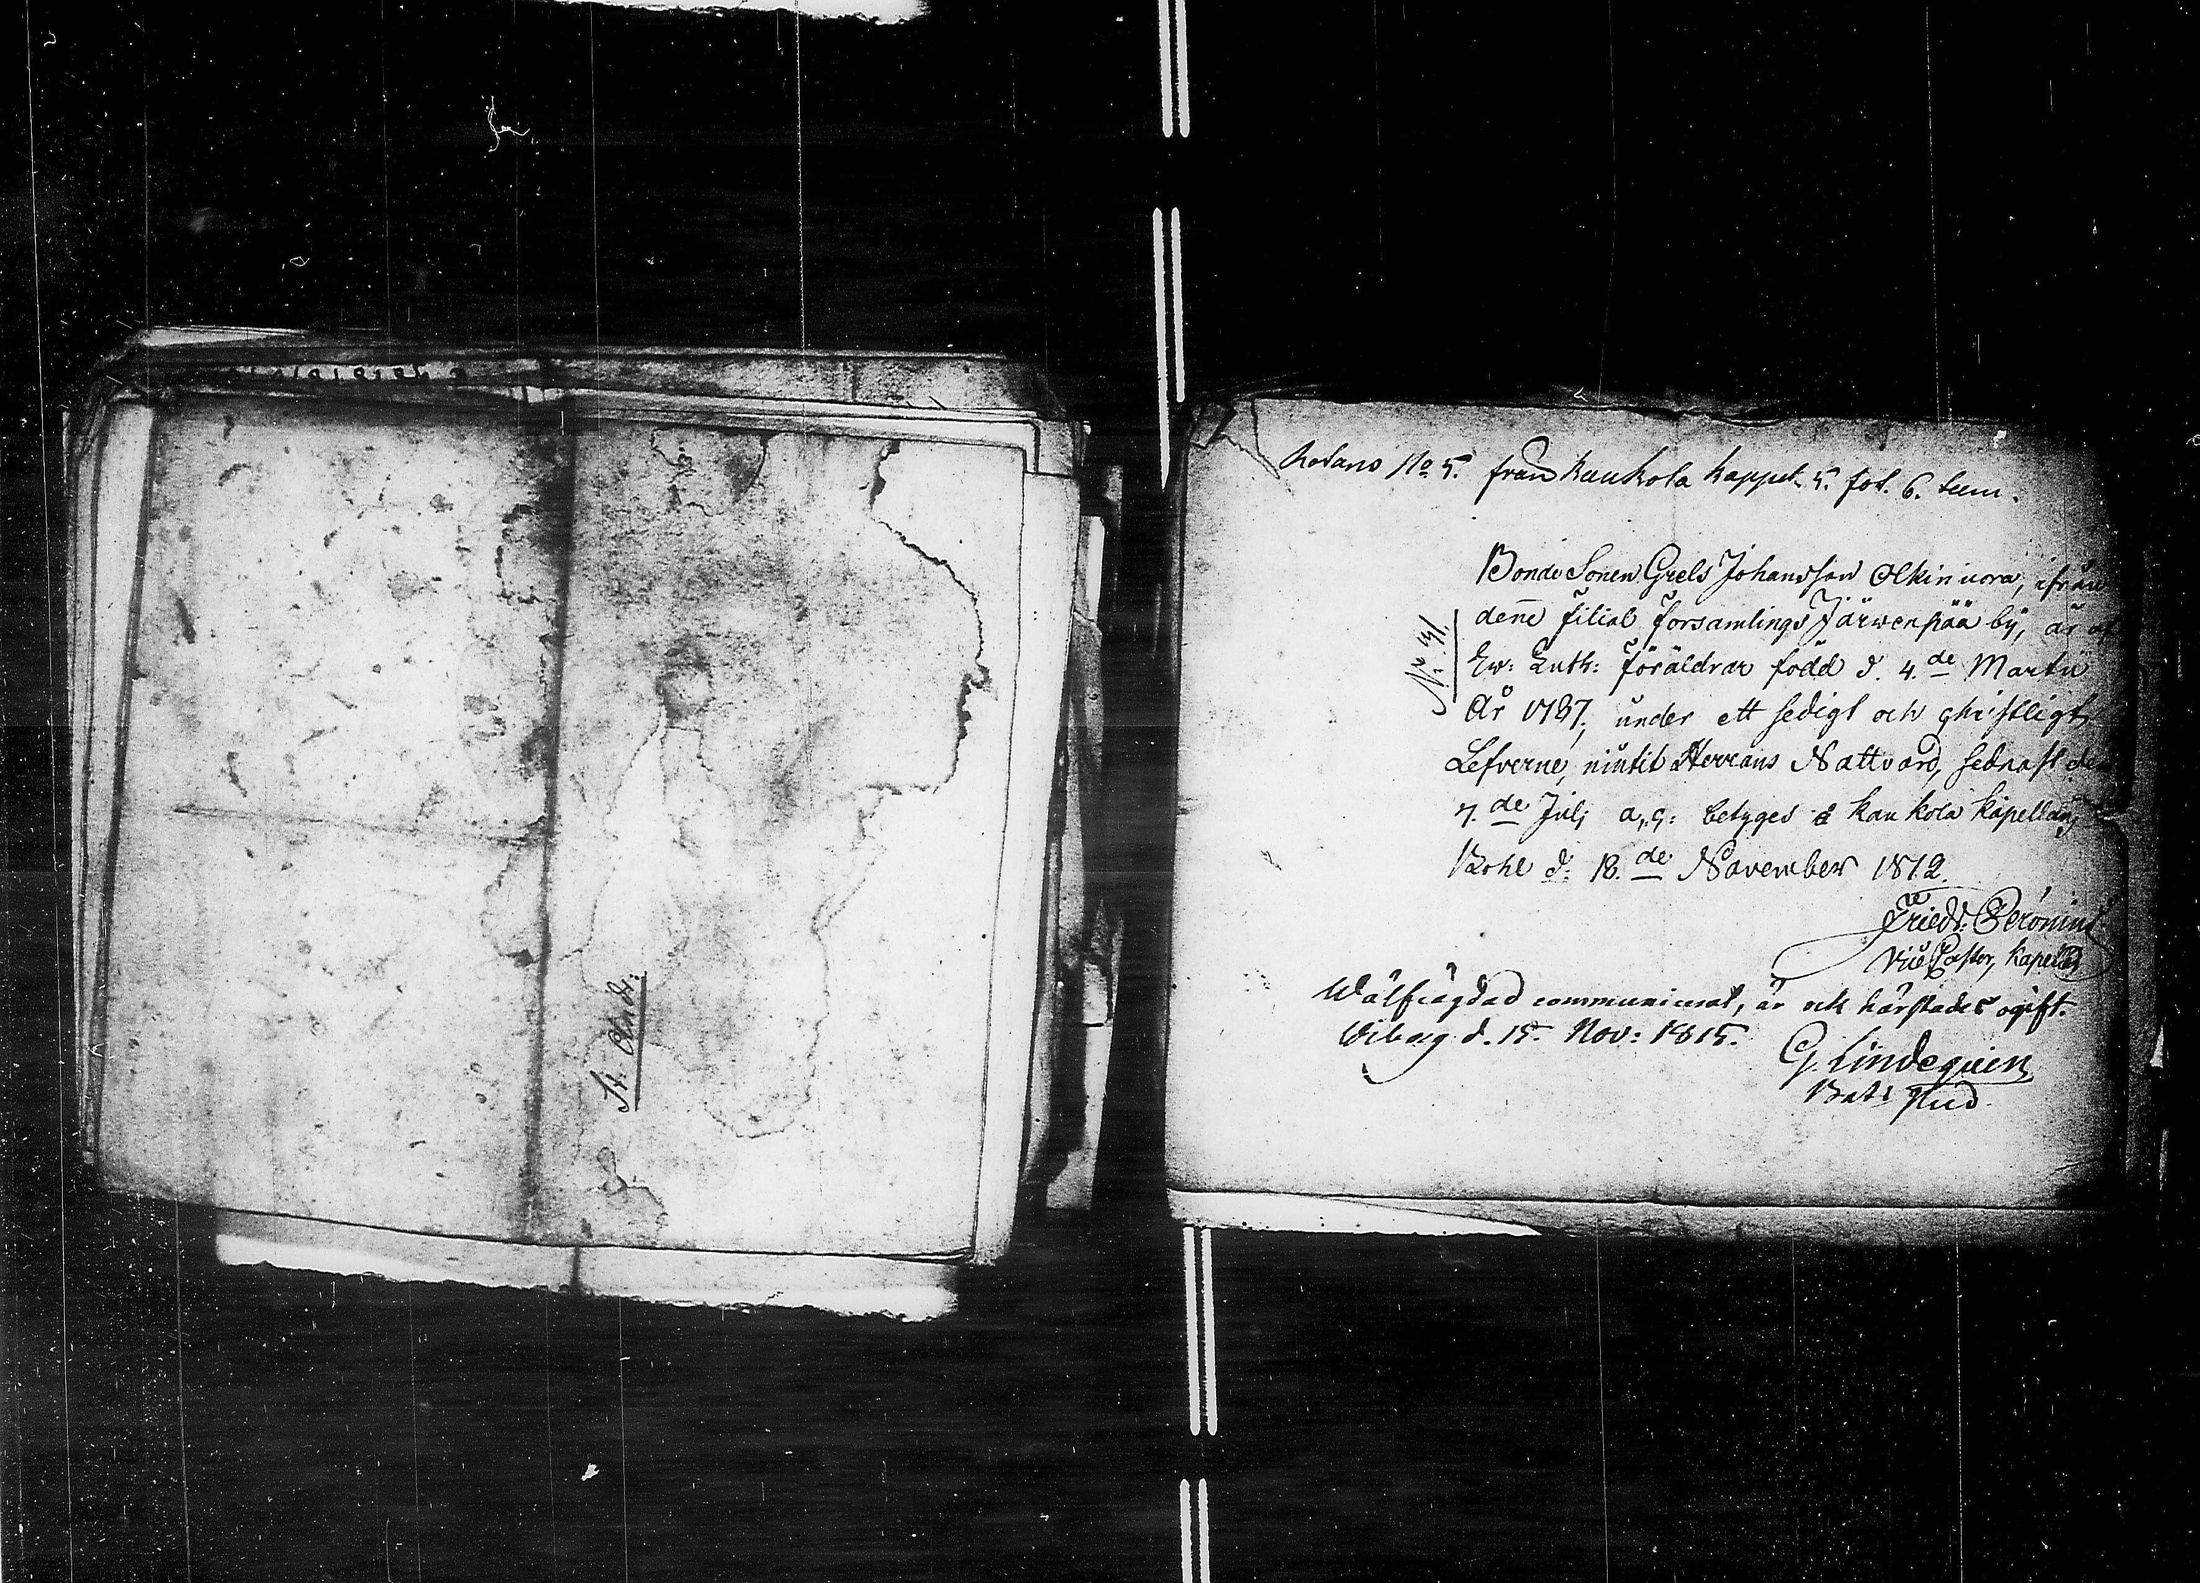 St. Andr:
Rotans No 5. från Kaukola kappel. 5. fot. 6. tum.
No 31.
Bonde Sonen Grels Johansson Olkinuora, ifrån
denne Filial Församlings Järwenpää bÿ, är af
Ew: Luth: föräldrar född d. 4.de Martii
År 1787, under ett sedigt och christligt
Lefverne, niutit Herrans Nattvard, sednast den
7.de Juli a. c: betyges å Kaukola kapellans
Bohl d. 18.de November 1812.
Friedr: Peronius
Vice Pastor, Kapel:
Wälfrägdad communicant, är ock härstädes ogift.
Wiborg d. 15. Nov: 1815.
G. Lindequin
Bat: